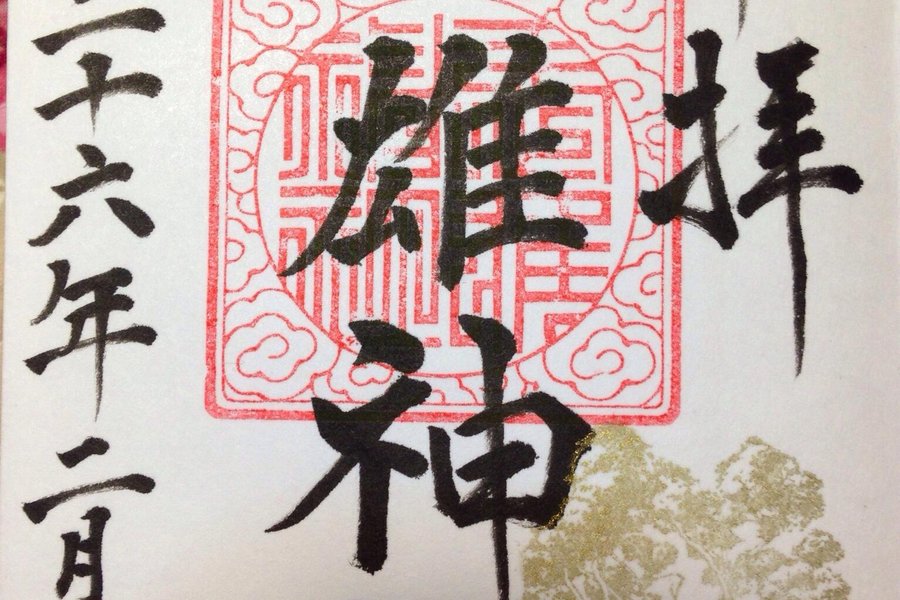 拝
雄神
二十六年二月